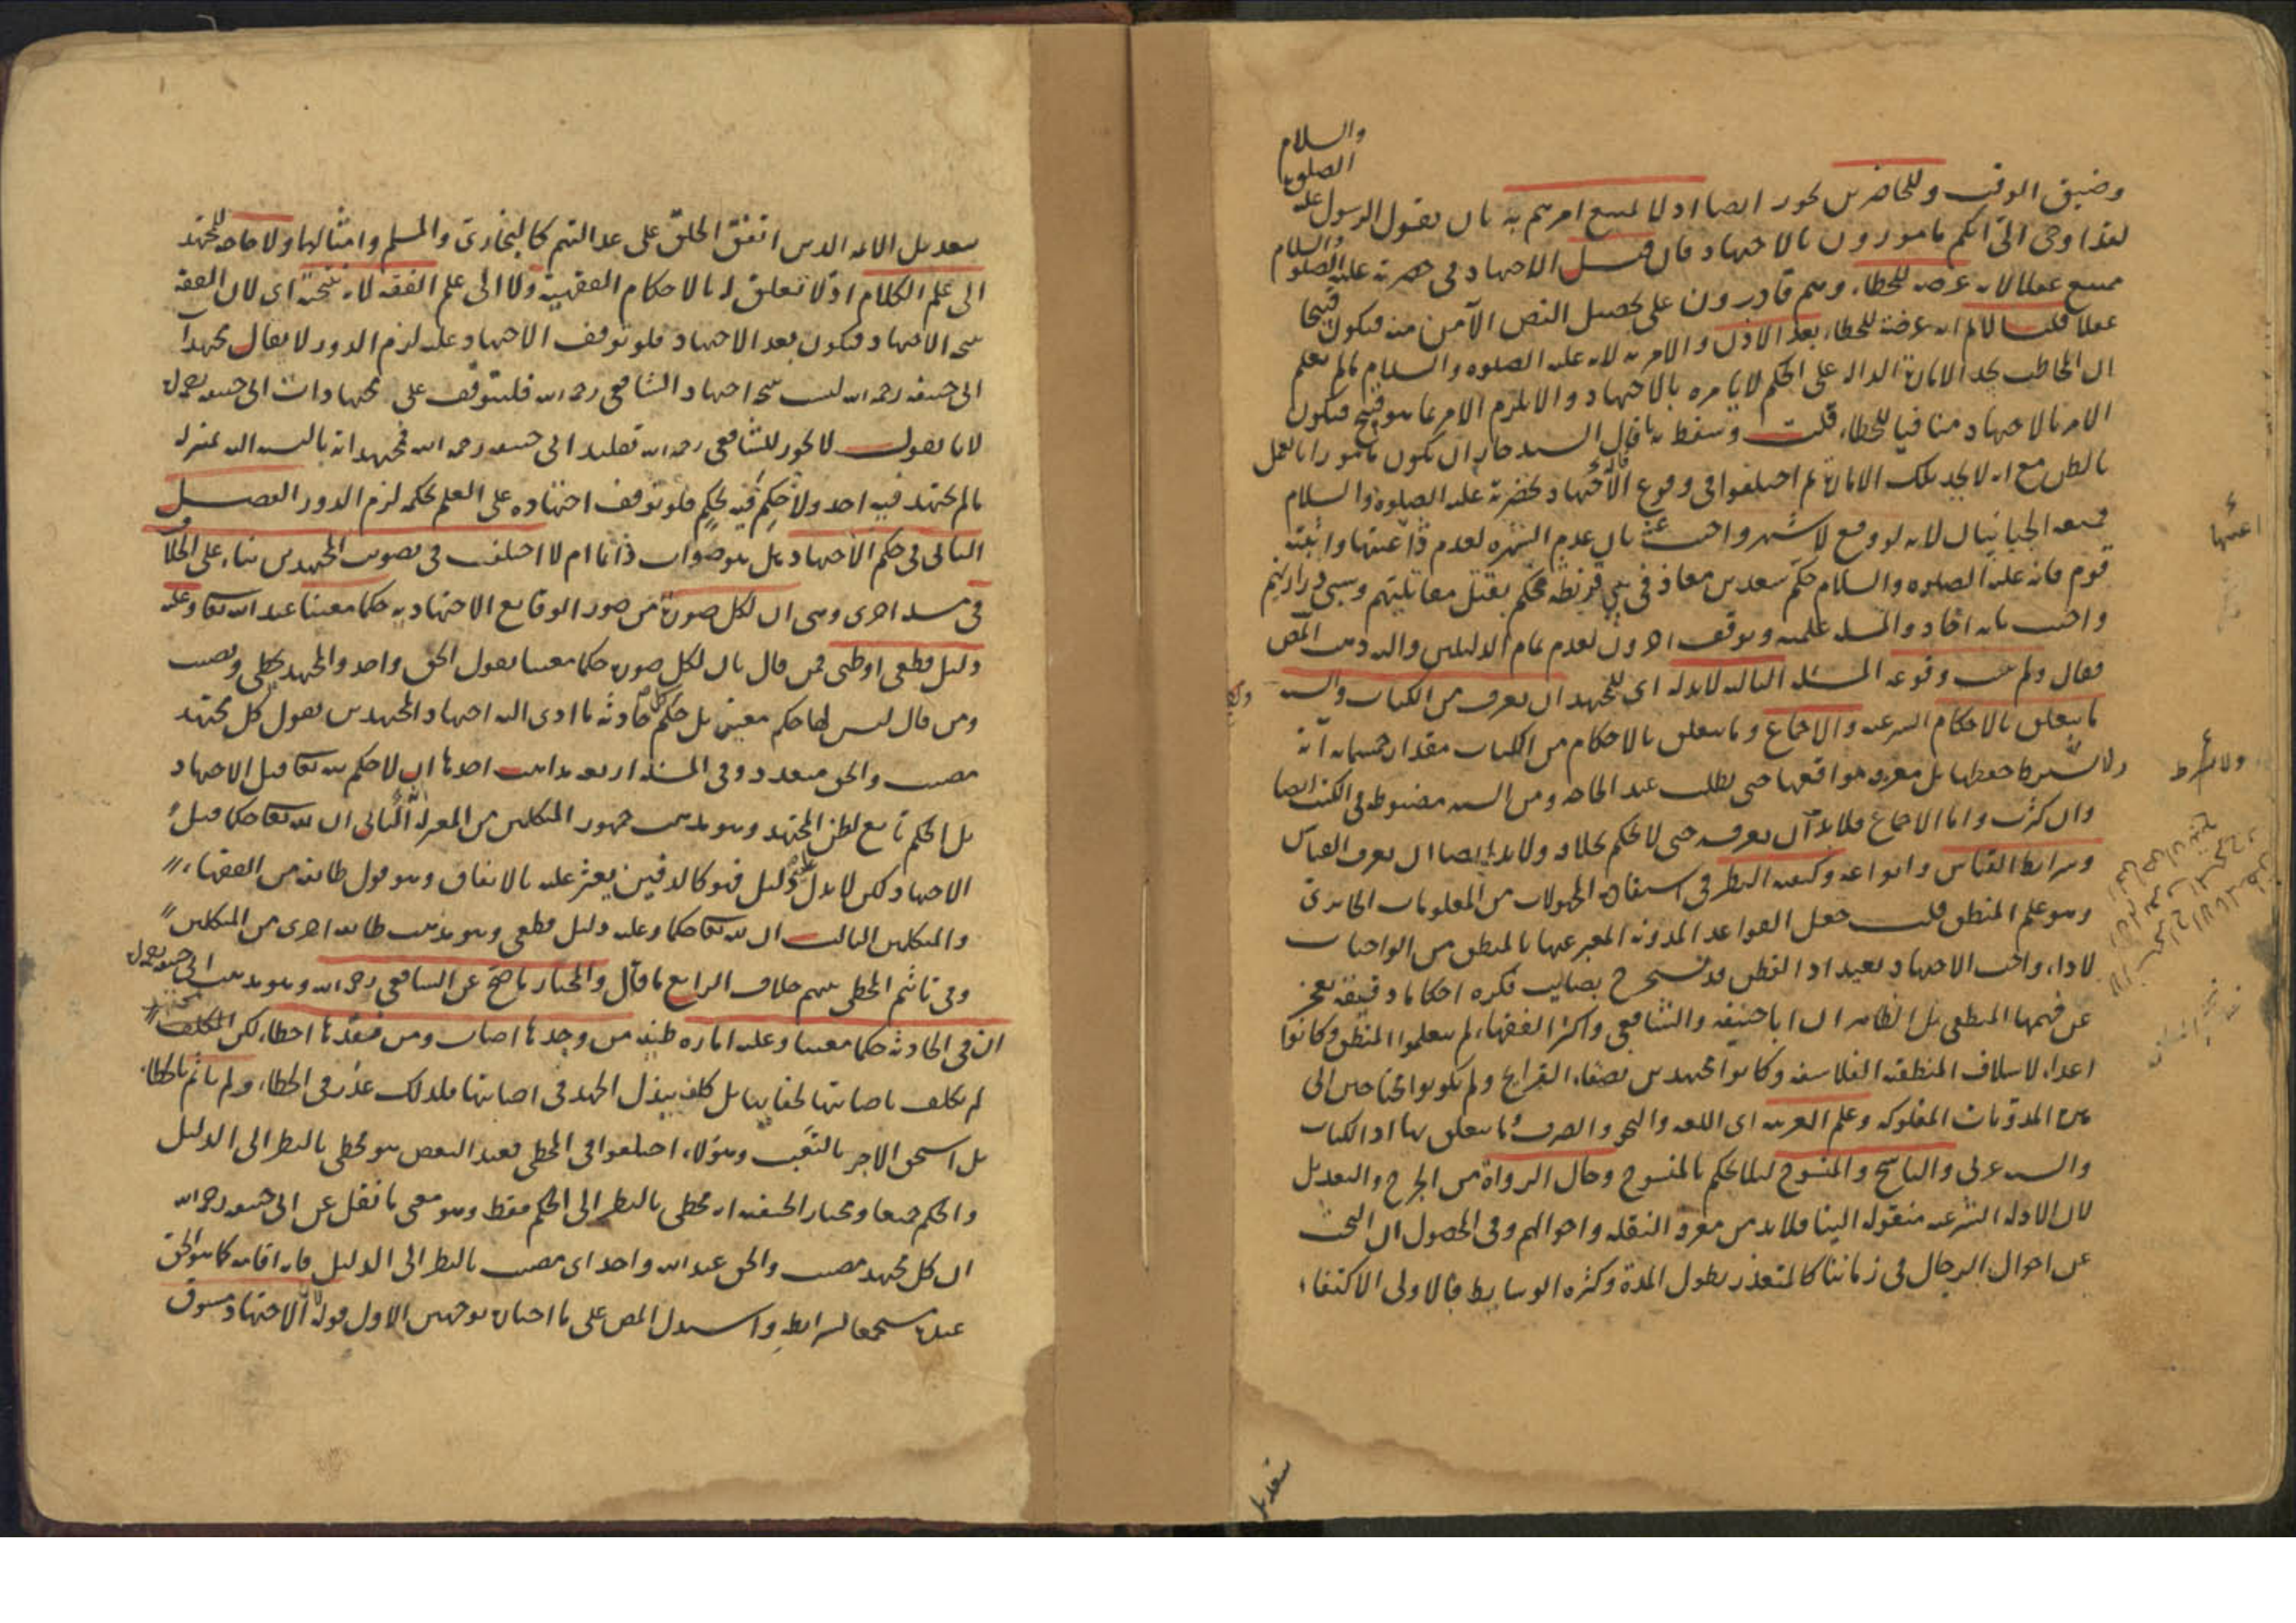 والسلام
الصلوة
وضيق الوقت وللحاضرين يجوز ايضا اذ لا يمتنع امرهم به بان يقول الرسول عليه
لقد اوحى الىّ انكم مامورون بالاجتهاد فان قيل الاجتهاد فى حضرته عليه الصلوة والسلام
ممتنع عقلا لانه عرضة للخطاء وهم قادرون على تحصيل النص الآمن منه فيكون قبيحا
عقلا قلت لا نم انه عرضة للخطاء بعد الاذن والامر به لانه عليه الصلوة والسلام ما لم يعلم
ان المخاطب يجد الامارة الدالة على الحكم لا يامره بالاجتهاد والا يلزم الامر بما هو قبيح فيكون
الامر بالاجتهاد منافيا للخطاء قلت وسقط به ما قال السيد جاز ان يكون مامورا بالعمل
بالظن مع انه لا يجد تلك الامارة ثم اختلفوا فى وقوع الاجتهاد بحضرته عليه الصلوة والسلام
فمنعه الجبائيان لانه لو وقع لاشتهر واجيب عنه بان عدم الشهرة لعدم واثبته
قوم فانه عليه الصلوة والسلام حكّم سعد بن معاذ فى بنى قريظة فحكم بقتل مقاتليهم وسبى ذراريهم
واجيب بانه آحاد والمسئلة علمية وتوقف آخرون لعدم تمام الدليلين واليه ذهب المص
فقال ولم يثبت وقوعه المسئلة الثالثة لا بد له اى للمجتهد ان يعرف من الكتاب والسنة
ما يتعلق بالاحكام الشرعية والاجماع وما يتعلق بالاحكام من الكتاب مقدار خمسمائة آية
ولا يشترط حفظها بل معرفة مواقعها حتى يطلب عند الحاجة ومن السنة مضبوطة فى الكتب ايضا
وان كثرت واما الاجماع فلا بد ان يعرفه حتى لا يحكم بخلافه ولا بد ايضا ان يعرف القياس
وشرائط القياس وانواعه وكيفية النظر فى استفادة المجهولات من المعلومات
وهو علم المنطق قلت جعل القواعد المدونة المعبر عنها بالمنطق من الواجبات
لاداء واجب الاجتهاد بعيد اذ الفطن قد يستخرج بصائب فكره احكاما دقيقة يعجز
عن فهمها المنطقى بل الظاهر ان ابا حنيفة والشافعى واكثر الفقهاء لم يتعلموا المنطق وكانوا
اعداء لاسلاف المنطقة الفلاسفة وكانوا مجتهدين بصفاء القرايح ولم يكونوا محتاجين الى
المدونات وعلم العربية اى اللغة والنحو والصرف وما يتعلق بها اذ الكتاب
والسنة عربى والناسخ والمنسوخ ليلا يحكم بالمنسوخ وحال الرواة من الجرح والتعديل
لان الادلة الشرعية منقولة الينا فلا بد من معرفة النقلة واحوالهم وفى المحصول ان البحث
عن احوال الرجال فى زماننا كالمتعذر بطول المدة وكثرة الوسايط فالاولى الاكتفاء
ولا يشترط
بتعديل
بتعديل الائمة الذين اتفق الخلق على عدالتهم كالبخارى والمسلم وامثالهما ولا حاجة للمجتهد
الى علم الكلام اذ لا تعلق له بالاحكام الفقهية ولا الى علم الفقه لانه نتيجته اى لان الفقه
نتيجة الاجتهاد فيكون بعد الاجتهاد فلو توقف الاجتهاد عليه لزم الدور لا يقال مجتهدات
ابى حنيفة رحمه الله ليست نتيجة اجتهاد الشافعى رحمه الله فليتوقف على مجتهدات ابى حنيفة
لانا نقول لا يجوز للشافعى رحمه الله تقليد ابى حنيفة رحمه الله فمجتهداته بالنسبة اليه بمنزلة
ما لم يجتهد فيه احد ولا حكم فيه بحكم فلو توقف اجتهاده على العلم بحكمه لزم الدور الفصل
الثانى فى حكم الاجتهاد بل هو صواب دائما ام لا اختلف فى تصويب المجتهدين بناء على الخلاف
فى مسئلة اخرى وهى ان لكل صورة من صور الوقايع الاجتهادية حكما معينا عند الله تعالى وعليه
دليل قطعى او ظنى فمن قال بان لكل صورة حكما معينا يقول الحق واحد والمجتهد يخطى ويصيب
ومن قال ليس لها حكم معين بل حكم كل حادثة ما ادى اليه اجتهاد المجتهدين يقول كل مجتهد
مصيب والحق متعدد وفى المسئلة اربعة مذاهب احدها ان لا حكم لله تعالى قبل الاجتهاد
بل الحكم تابع لظن المجتهد وهو مذهب جمهور المتكلمين من المعتزلة الثانى ان لله تعالى حكما قبل
الاجتهاد لكن لا يدل عليه دليل فهو كالدفين يعثر عليه بالاتفاق وهو قول طائفة من الفقهاء
والمتكلمين الثالث ان لله تعالى حكما وعليه دليل قطعى وهو مذهب طائفة اخرى من المتكلمين
وفى تاثيم المخطى منهم خلاف الرابع ما قال والمختار ما صح عن الشافعى رحمه الله وهو مذهب ابى حنيفة
ان فى الحادثة حكما معينا وعليه امارة ظنية من وجدها اصاب ومن فقدها اخطاء لكن المكلف
لم يكلف باصابتها لخفائها بل كلف ببذل الجهد فى اصابتها فلذلك عذر فى الخطاء ولم ياثم بالخطاء
بل استحق الاجر بالتعب وهؤلاء اختلفوا فى المخطى فعند البعض هو مخطى بالنظر الى الدليل
والحكم جميعا ومختار الحنفية انه مخطى بالنظر الى الحكم فقط وهو معنى ما نقل عن ابى حنيفة رحمه الله
ان كل مجتهد مصيب والحق عند الله واحد اى مصيب بالنظر الى الدليل فانه اقامه كما هو الحق
عنده مستجمعا لشرائطه واستدل المص على ما اختاره بوجهين الاول قوله لان الاجتهاد مسبوق